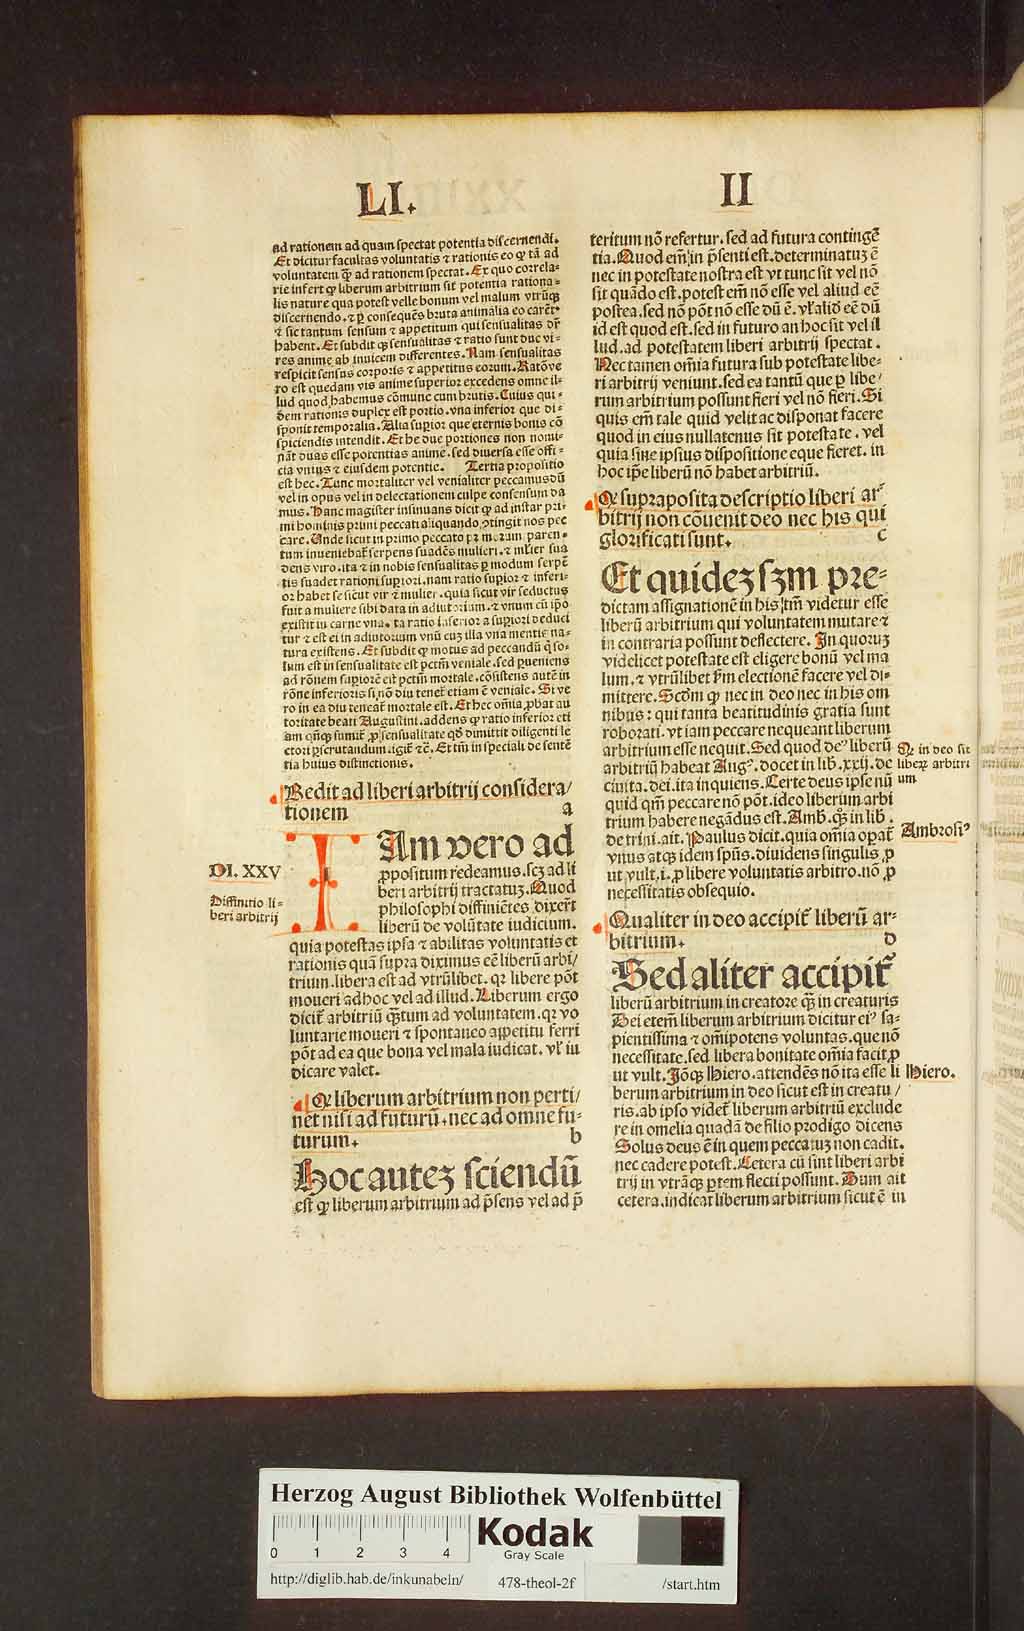 LI.
II
ad rationem ad quam spectat potentia discernendi.
Et dicitur facultas voluntatis ⁊ rationis eo ꝙ tā ad
voluntatem ꝙ̄ ad rationem spectat. Ex quo correla-
rie infert ꝙ liberum arbitrium sit potentia rationa-
lis nature qua potest velle bonum vel malum vtrūqꝫ
discernendo. ⁊ ꝑ consequēs bruta animalia eo carēt.
⁊ sic tantum sensum ⁊ appetitum qui sensualitas dr̄
habent. Et subdit ꝙ sensualitas ⁊ ratio sunt due vi-
res anime ab inuicem differentes. Nam sensualitas
respicit sensus corporis ⁊ appetitus eorum. Ratō ve
ro est quedam vis anime superior excedens omne il-
lud quod habemus cōmune cum brutis. Cuius qui-
dem rationis duplex est portio. vna inferior que di-
sponit temporalia. Alia suꝑior que eternis bonis cō
spiciendis intendit. Et he due portiones non nomi-
nāt duas esse potentias anime. sed diuersa esse offi-
cia vnius ⁊ eiusdem potentie. Tertia propositio
est hec. Tunc mortaliter vel venialiter peccamus dū
vel in opus vel in delectationem culpe consensum da
mus. Hanc magister insinuans dicit ꝙ ad instar pri-
mi hominis primi peccati aliquando ꝯtingit nos pec
care. Unde sicut in primo peccato pr̄morum paren-
tum inueniebat̄ serpens suadēs mulieri. ⁊ ml̄ier sua
dens viro. ita ⁊ in nobis sensualitas ꝑ modum serpē
tis suadet rationi suꝑiori. nam ratio suꝑior ⁊ inferi-
or habet se sicut vir ⁊ mulier. quia sicut vir seductus
fuit a muliere sibi data in adiutorium. ⁊ vnum cū ip̄o
existit in carne vna. ta ratio inferior a suꝑiori deduci
tur ⁊ est ei in adiutorum vnū cuꝫ illa vna mentis na-
tura existens. Et subdit ꝙ motus ad peccandū q̇ so-
lum est in sensualitate est pctm̄ veniale. sed ꝑueniens
ad rōnem suꝑiorē eit pctm̄ mortale. cōsistens autē in
rōne inferioris si nō diu tenet̄ etiam ē veniale. Si ve
ro in ea diu teneat̄ mortale est. Et hec om̄ia ꝓbat au
toritate beati Augustini. addens ꝙ ratio inferior eti
am qn̄qꝫ sumit̄ ꝓ sensualitate qd̄ dimittit diligenti le
ctori ꝑscrutandum. igit̄ ⁊c̄. Et tm̄ in speciali de sentē
tia huius distinctionis.
Redit ad liberi arbitrij considera/
tionem a
DI. XXV
Diffinitio li-
beri arbitrij
IAm vero ad
ꝓpositum redeamus. scꝫ ad li
beri arbitrij tractatuꝫ. Quod
philosophi diffiniētes dixer̄t
liberū de volūtate iudicium.
quia potestas ipsa ⁊ abilitas voluntatis et
rationis quā supra diximus eē liberū arbi/
trium. libera est ad vtrūlibet. qꝛ libere pōt
moueri ad hoc vel ad illud. Liberum ergo
dicit̄ arbitriū q̄tum ad voluntatem. qꝛ vo
luntarie moueri ⁊ spontaneo appetitu ferri
pōt ad ea que bona vel mala iudicat. vl̄ iu
dicare valet.
Q̄ liberum arbitrium non perti/
net nisi ad futurū. nec ad omne fu-
turum. b
Hoc auteꝫ sciendū
est ꝙ liberum arbitrium ad p̄sens vel ad p̄
teritum nō refertur. sed ad futura contingē
tia. Quod em̄ in p̄senti est. determinatuꝫ ē
nec in potestate nostra est vt tunc sit vel nō
sit quādo est. potest em̄ nō esse vel aliud eē
postea. sed nō pōt nō esse dū ē. vl̄ alid̄ eē dū
id est quod est. sed in futuro an hoc sit vel il
lud. ad potestatem liberi arbitrij spectat.
Nec tamen om̄ia futura sub potestate libe-
ri arbitrij veniunt. sed ea tantū que ꝑ libe/
rum arbitrium possunt fieri vel nō fieri. Si
quis em̄ tale quid velit ac disponat facere
quod in eius nullatenus sit potestate. vel
quia sine ipsius dispositione eque fieret. in
hoc ip̄e liberū nō habet arbitriū.
Q̄ supraposita descriptio liberi ar
bitrij non cōuenit deo nec his qui
glorificati sunt. c
Et quideꝫ sꝫm pre-
dictam assignationē in his tm̄ videtur esse
liberū arbitrium qui voluntatem mutare ⁊
in contraria possunt deflectere. In quoruꝫ
videlicet potestate est eligere bonū vel ma
lum. ⁊ vtrūlibet s̄m electionē facere vel di-
mittere. Scd̄m ꝙ nec in deo nec in his om
nibus: qui tanta beatitudinis gratia sunt
roborati. vt iam peccare nequeant liberum
arbitrium esse nequit. Sed quod deꝰ liberū
arbitriū habeat Augꝰ. docet in lib̄. xxij. de
ciuita. dei. ita inquiens. Certe deus ipse nū
quid qm̄ peccare nō pōt. ideo liberum arbi
trium habere negādus est. Amb. qꝫ in lib.
de trini. ait. Paulus dicit. quia om̄ia opat̄
vnus atqꝫ idem spūs. diuidens singulis ꝓ
ut vult. i. ꝓ libere voluntatis arbitro. nō ꝓ
necessitatis obsequio.
Q̄ in deo sit
liberꝫ arbitri
um
Ambrosiꝰ
Qualiter in deo accipit̄ liberū ar-
bitrium. d
Sed aliter accipit̄
liberū arbitrium in creatore q̄ in creaturis
Dei etem̄ liberum arbitrium dicitur eiꝰ sa-
pientissima ⁊ om̄ipotens voluntas. que nō
necessitate. sed libera bonitate om̄ia facit ꝓ
ut vult. Iō qꝫ Hiero. attendēs nō ita esse li
berum arbitrium in deo sicut est in creatu/
ris. ab ipso videt̄ liberum arbitriū exclude
re in omelia quadā de filio prodigo dicens
Solus deus ē in quem peccatuꝫ non cadit.
nec cadere potest. Cetera cū sint liberi arbi
trij in vtrāqꝫ ꝑtem flecti possunt. Dum ait
cetera. indicat liberum arbitrium sicut ē in
Hiero.
Herzog August Bibliothek Wolfenbüttel
0 1 2 3 4
Kodak
Gray Scale
http://diglib.hab.de/inkunabeln/ 478-theol-2f /start.htm